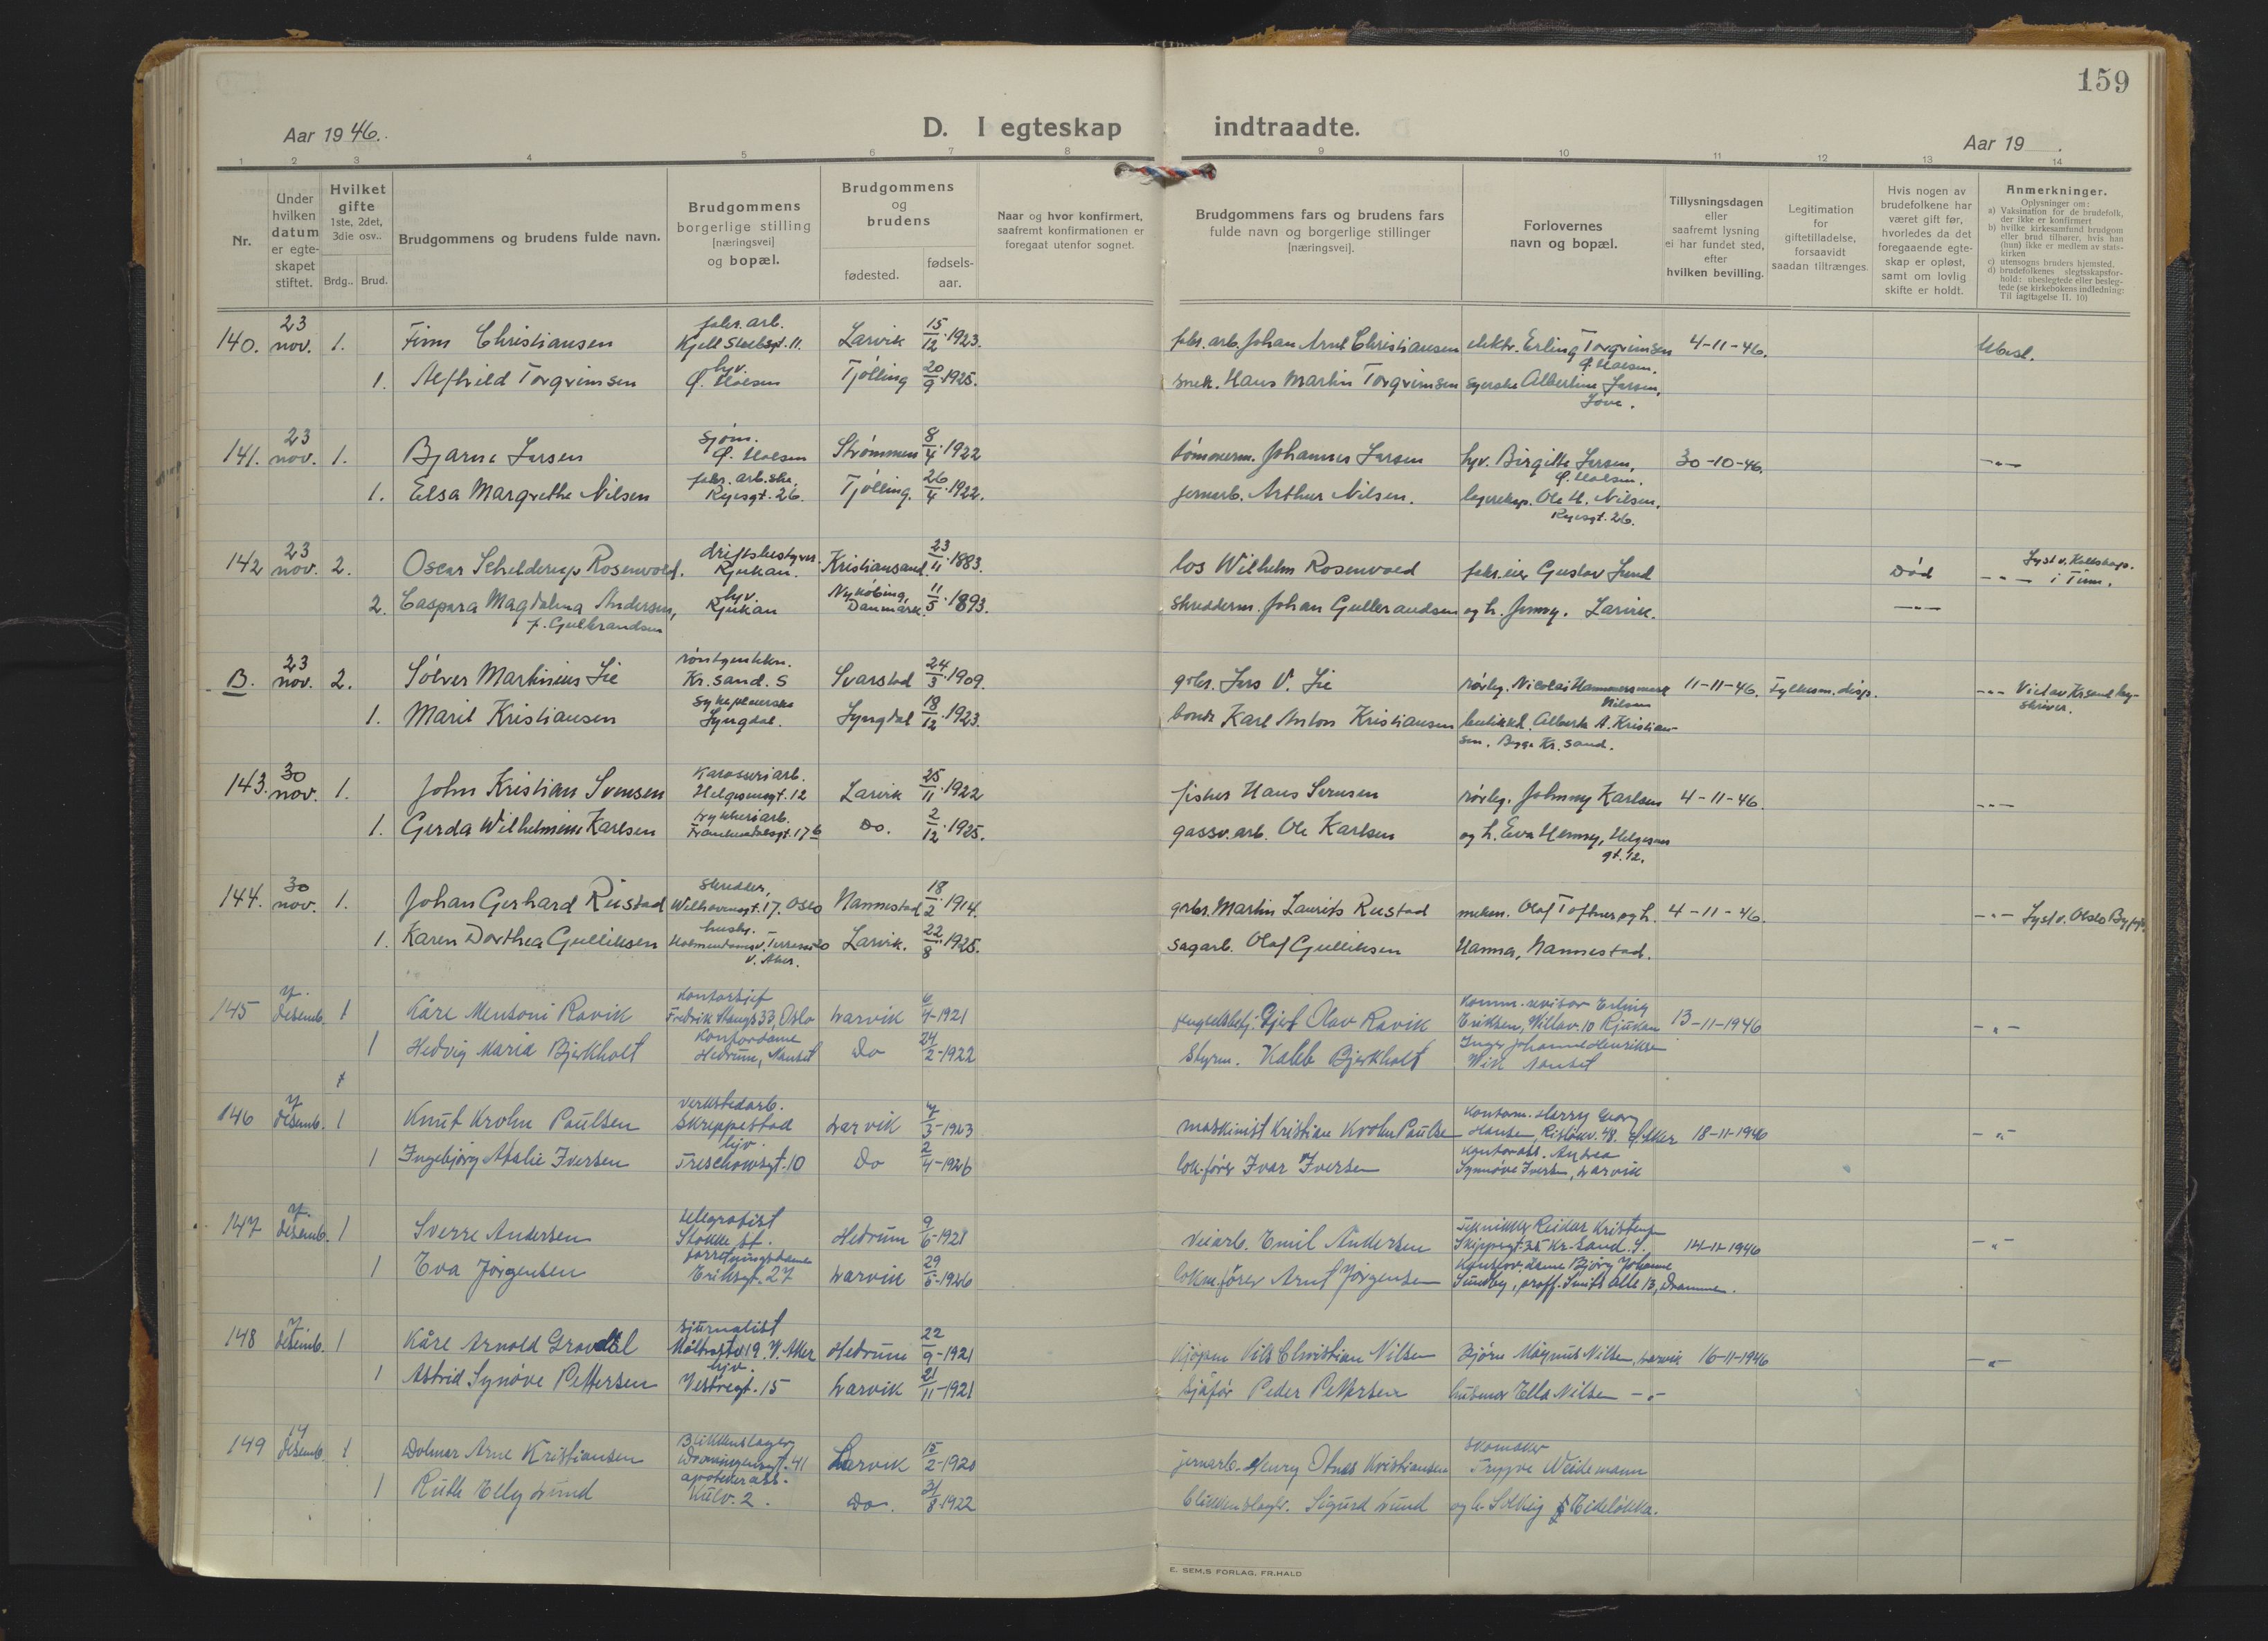 159
Aar 1946.
D. I egteskap indtraadte.
Aar 19 .
1 2 3 4 5 6 7 8 9 10 11 12 13 14
Nr.
Under hvilken datum er egte-skapet stiftet.
Hvilket gifte
1ste, 2det, 3die osv..
Brdg.. Brud.
Brudgommens og brudens fulde navn.
Brudgommens borgerlige stilling [næringsvei] og bopæl.
Brudgommens og brudens
fødested.
fødsels-aar.
Naar og hvor konfirmert, saafremt konfirmationen er foregaat utenfor sognet.
Brudgommens fars og brudens fars fulde navn og borgerlige stillinger [næringsvei].
Forlovernes navn og bopæl.
Tillysningsdagen eller saafremt lysning ei har fundet sted, efter hvilken bevilling.
Legitimation for giftetilladelse, forsaavidt saadan tiltrænges.
Hvis nogen av brudefolkene har været gift før, hvorledes da det foregaaende egte-skap er opløst, samt om lovlig skifte er holdt.
Anmerkninger.
Oplysninger om:
a) Vaksination for de brudefolk, der ikke er konfirmert
b) hvilke kirkesamfund brudgom eller brud tilhører, hvis han (hun) ikke er medlem av stats-kirken
c) utensogns bruders hjemsted.
d) brudefolkenes slegtsskapsfor-hold: ubeslegtede eller besleg-tede (se kirkebokens indledning: Til iagttagelse II. 10)
140. 23 nov. 1. Finn Christiansen fabr. arb. Larvik 15/12 1923. fabr. arb. Johan Arnt Christiansen elektr. Erling Torgrimsen 4-11-46. Ubesl.
1. Alfhild Torgrimsen hv. Tjølling 20/9 1925. snek. Hans Martin Torgrimsen syerske Albertine Larsen,
141. 23 nov. 1. Bjarne Larsen sjøm. Strømmen 8/4 1922 tømmerm. Johannes Larsen hv. Birgitte Larsen, 30-10-46.
1. Elsa Margrethe Nilsen fabr. arb.ske. Ryesgt. 26. Tjølling. 26/4 1922. jernarb. Arthur Nilsen. Ole H. Nilsen, Ryesgt. 26.
142 23 nov. 2. Oscar Schelderup Rosenvold. driftsbestyrer Rjukan. Kristiansand. 23/11 1883. los Wilhelm Rosenvold fabr.eier Gustav Lund Død Lyst v. i Tinn.
2. Caspara Magdalena Andersen, f. Gulbrandsen hv. Rjukan Nykøbing, Danmark. 11/5 1893. skredderm. Johan Gulbrandsen og h. Jenny. Larvik.
B. 23 nov. 2. Sølver Martinius Lie røntgentekn. Kr.sand. S Svarstad 24/3 1909. grbr. Lars V. Lie rørleg. Nicolai Nilsen 11-11-46. Fylkesm. disp. Viet av Kr.sand by-skriver.
1. Marit Kristiansen sykepleierske Lyngdal. Lyngdal 18/12 1923. bonde Karl Anton Kristiansen A. Kristian-sen. Kr. sand.
143. 30 nov. 1. John Kristian Svensen Karosseriarb. Helgesensgt. 12 Larvik 25/11 1922 fisker Hans Svensen rørleg. Johnny Karlsen 4-11-46.
1. Gerda Wilhelmine Karlsen trykkeriarb. Do. 2/12 1925. gassv. arb. Ole Karlsen og h. Eva Henny, Helgesens gt. 12.
144. 30 nov. 1. Johan Gerhard Rustad skredder, Oslo Nannestad 18/2 1914. grbr. Martin Laurits Rustad Olaf Toftner og h. 4-11-46. Lyst v. Oslo Byfgd.
1. Karen Dorthea Gulliksen v. Aker. Larvik. 22/8 1925. sagarb. Olaf Gulliksen Hanna, Nannestad.
145 7. desemb. 1 Kåre Mensoni Ravik Kontorsjef Fredrik Stangs 33, Oslo Larvik 6/4-1921 Gjert Olav Ravik Komm. revisor Erling Eriksen, Rjukan 13-11-1946
1 Hedvig Maria Bjerkholt Kontordame Hedrum, Nanset Do 24/2-1922 Styrm. Kaleb Bjerkholt Inger Johanne Henriksen Nanset
146 7 desemb. 1 Knut Krohn Paulsen verkstedarb. Skreppestad Larvik 7/3-1923 maskinist Kristian Krohn Paulsen Kontorm. Harry Georg Hansen, Aker 18-11-1946
1 Ingebjørg Atalie Iversen hjv. Treschowsgt. 10 Do 2/4-1926 lok.fører Ivar Iversen Kontorass. Andrea Synnøve Iversen, Larvik
147 7. desemb. 1 Sverre Andersen telegrafist Stokke st. Hedrum 9/6-1921 Veiarb. Emil Andersen Tekniker Reidar Kristensen Skippergt. 35 Kr. Sand. S. 14-11-1946
1 Eva Jørgensen forretningsdame Eriksgt. 27 Larvik 29/5-1926 lokm.fører Arnt Jørgensen Kontordame Bjørg Johanne Sundby, proff. Smiths alle 13, Drammen.
148 7 desemb. 1 Kåre Arnold Gravdal sjurnalist V. Aker Hedrum 22/9-1921 Kjøpm Nils Christian Nilsen Bjørn Magnus Nilsen, Larvik 16-11-1946
1 Astrid Synøve Pettersen hjv. Vestregt. 15 Larvik 21/11-1921 Sjåfør Peder Pettersen husmor Ella Nilsen
149 14 desemb. 1 Dolmar Arne Kristiansen Blikkenslager Dronningensgt. 41 Larvik 15/2-1920 jernarb. Henry Otnes Kristiansen skomaker Trygve Weidemann
1 Ruth Elly Lund apotekerass. Kulv. 2. Do. 31/8-1922 blikkenslager. Sigurd Lund og h. Solveig
E. SEM.S FORLAG, FR.HALD